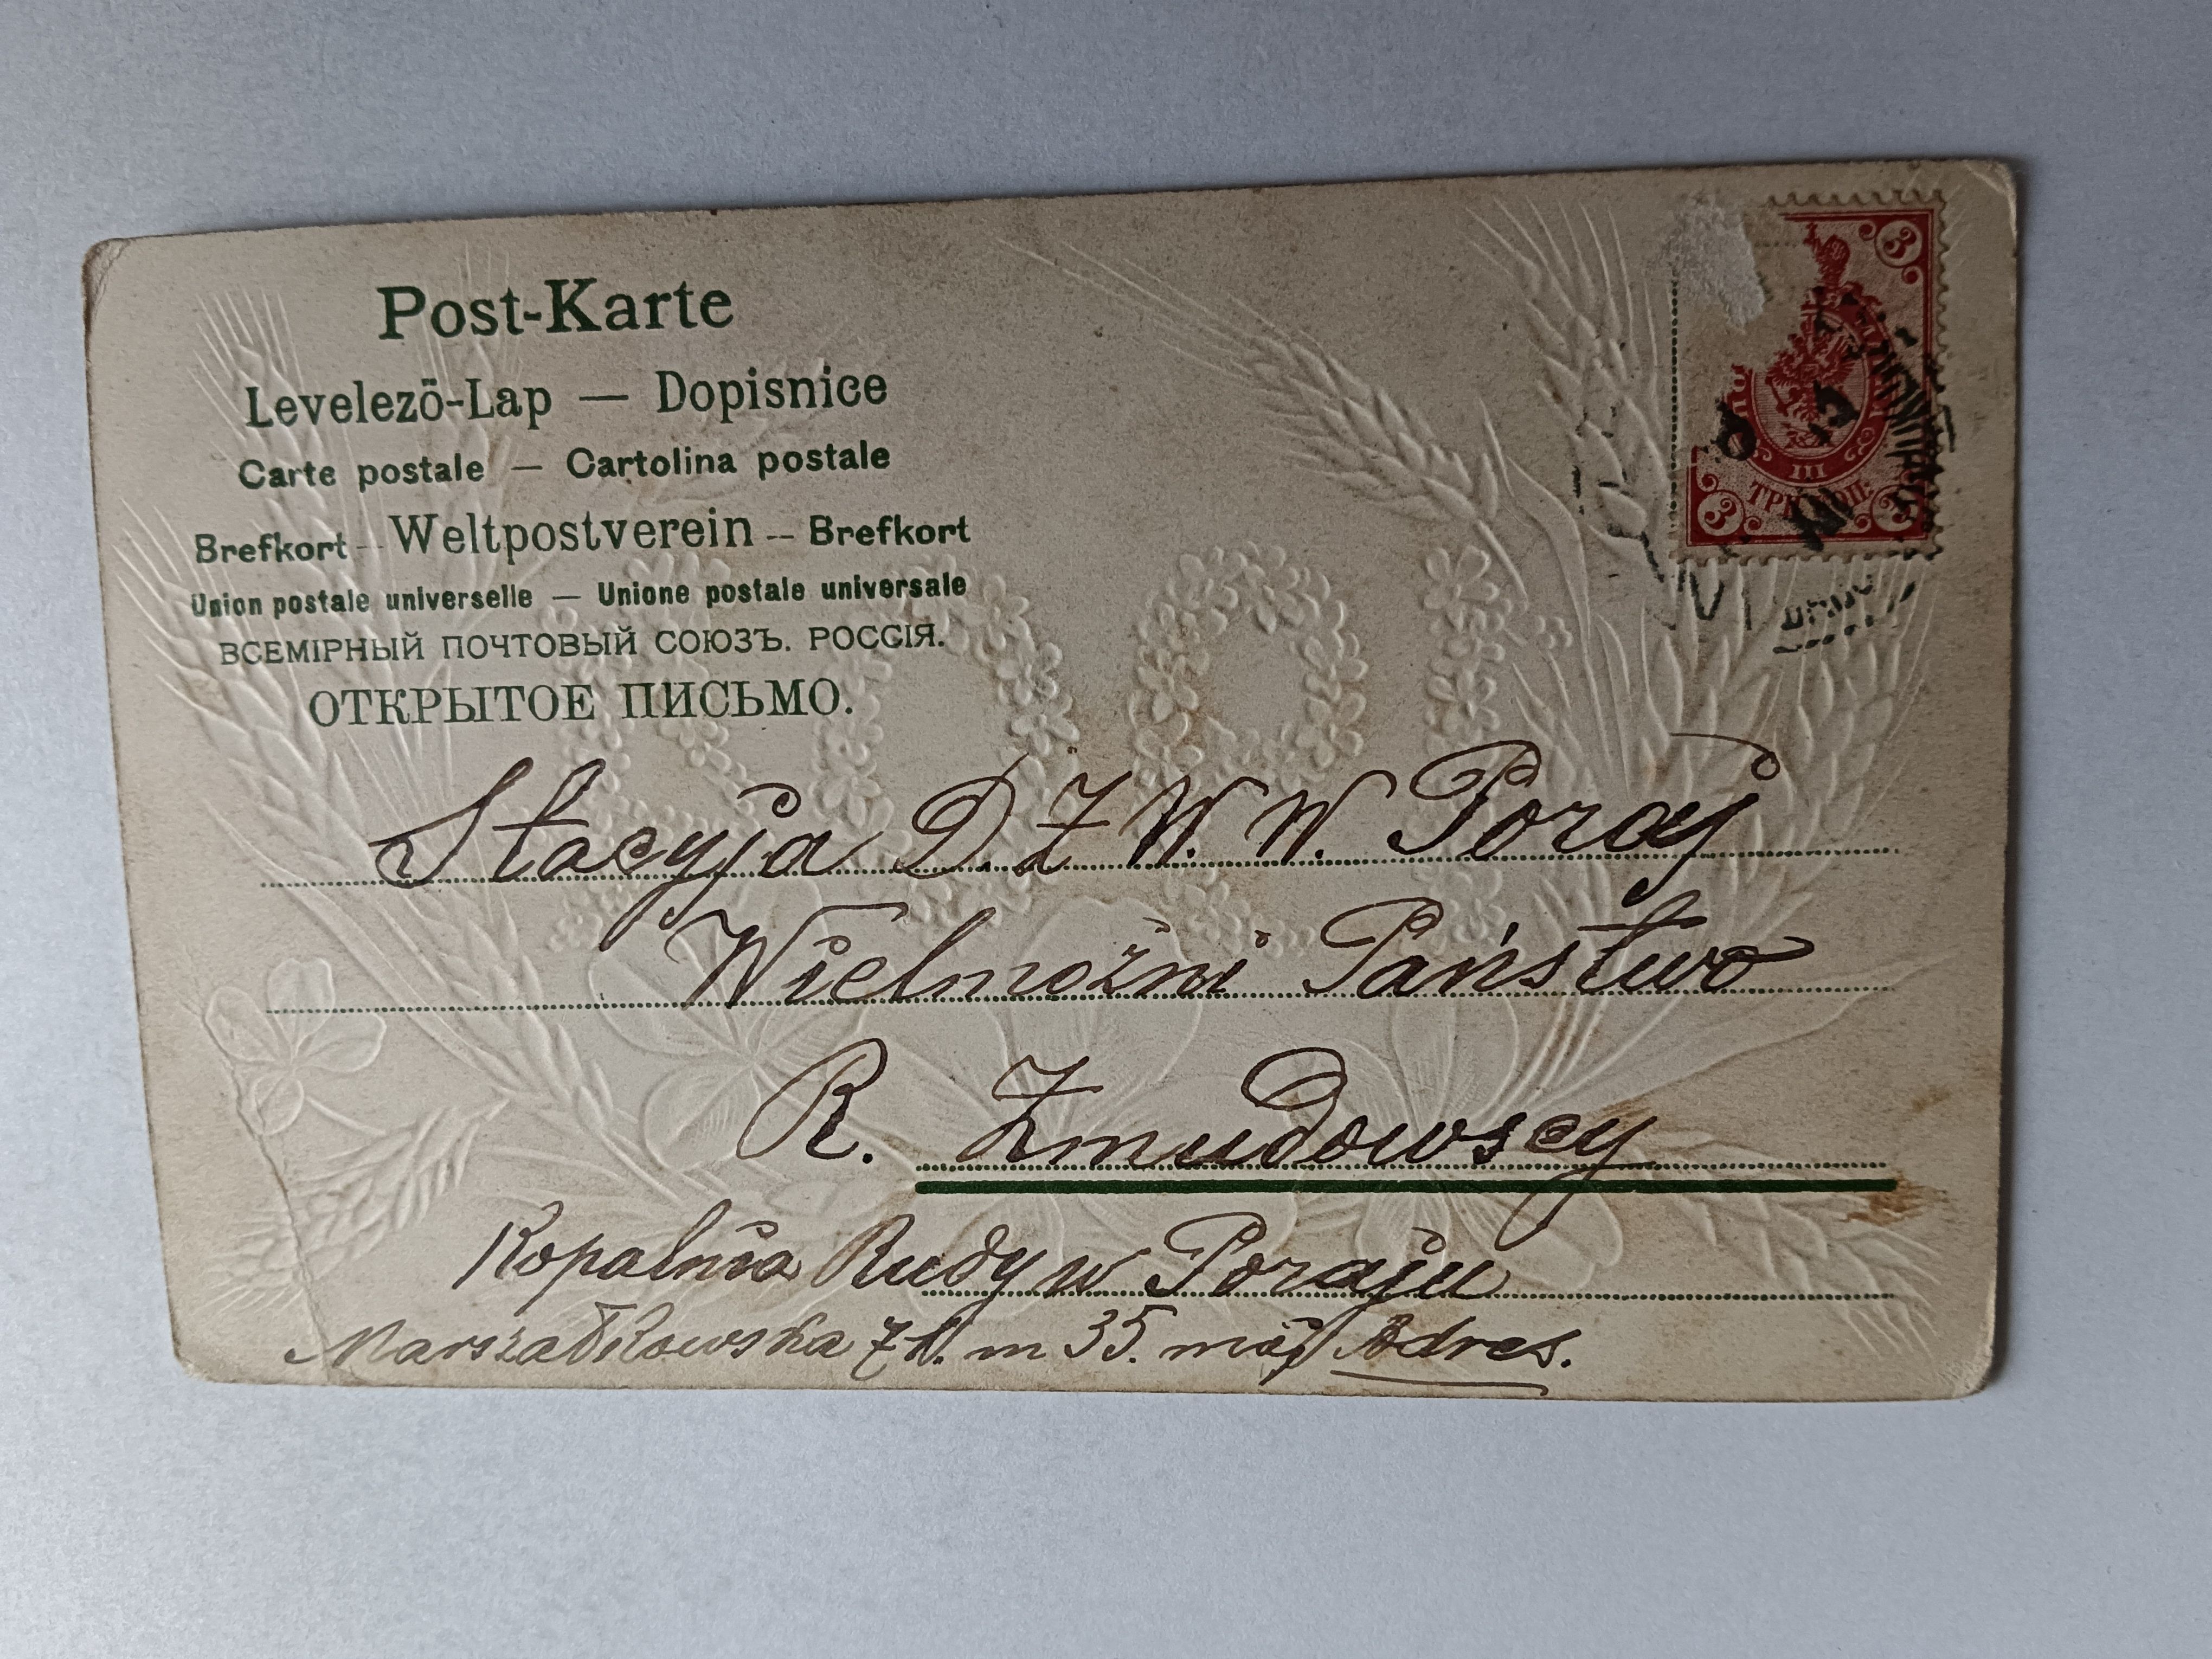 Post-Karte
Levelező-Lap — Dopisnice
Carte postale — Cartolina postale
Brefkort -- Weltpostverein -- Brefkort
Union postale universelle — Unione postale universale
ВСЕМІРНЫЙ ПОЧТОВЫЙ СОЮЗЪ. РОССІЯ.
ОТКРЫТОЕ ПИСЬМО.
3
III
ТРИ КОП.
3
Stacyja D. Ż W. W. Poraj
Wielmożni Państwo
R. Zmudowscy
Kopalnia Rudy w Poraju
Marszałkowska 71. m 35. mój Adres.